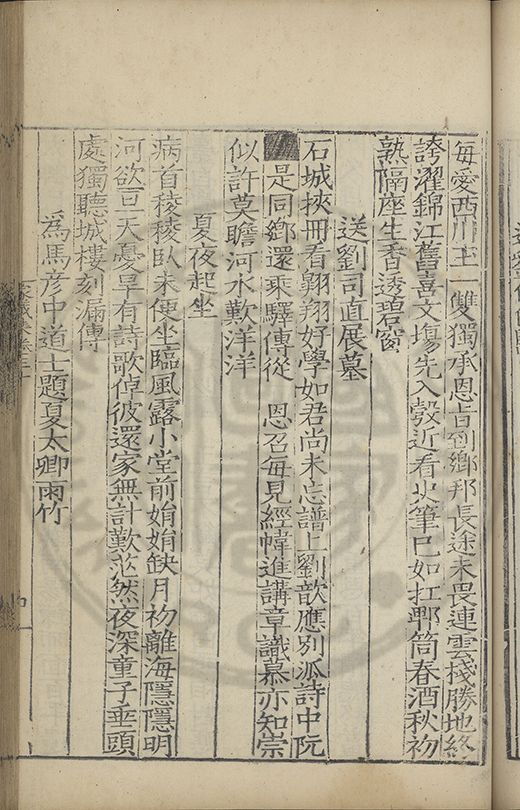 每愛西川玉一雙獨承恩旨到鄉邦長途未畏連雲棧勝地終
誇濯錦江舊喜文塲先入彀近看史筆已如扛郫筒春酒秋初
熟隔座生香透碧窗
送劉司直展墓
石城挾冊看翱翔好學如君尚未忘譜上劉歆應別派詩中阮
是同鄉還乘驛傳從 恩召每見經幃進講章識慕亦知崇
似許莫瞻河水歎洋洋
夏夜起坐
病首稜稜臥未便坐臨風露小堂前娟娟缺月初離海隱隱明
河欲亘天憂旱有詩歌倬彼還家無計歎茫然夜深童子垂頭
處獨聽城樓刻漏傳
為馬彥中道士題夏太卿雨竹